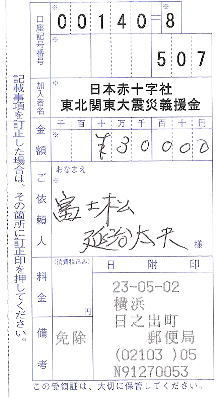 口座記号番号
00140=8
507
加入者名
日本赤十字社
東北関東大震災義援金
金額
千百十万千百十円
¥30000
ご依頼人
おなまえ
富士松
延治太夫
様
料金
(消費税込み)
円
備考
免除
日附印
23-05-02
横浜
日之出町
郵便局
(02103)05
N91270053
記載事項を訂正した場合は、その箇所に訂正印を押してください。
この受領証は、大切に保管してください。